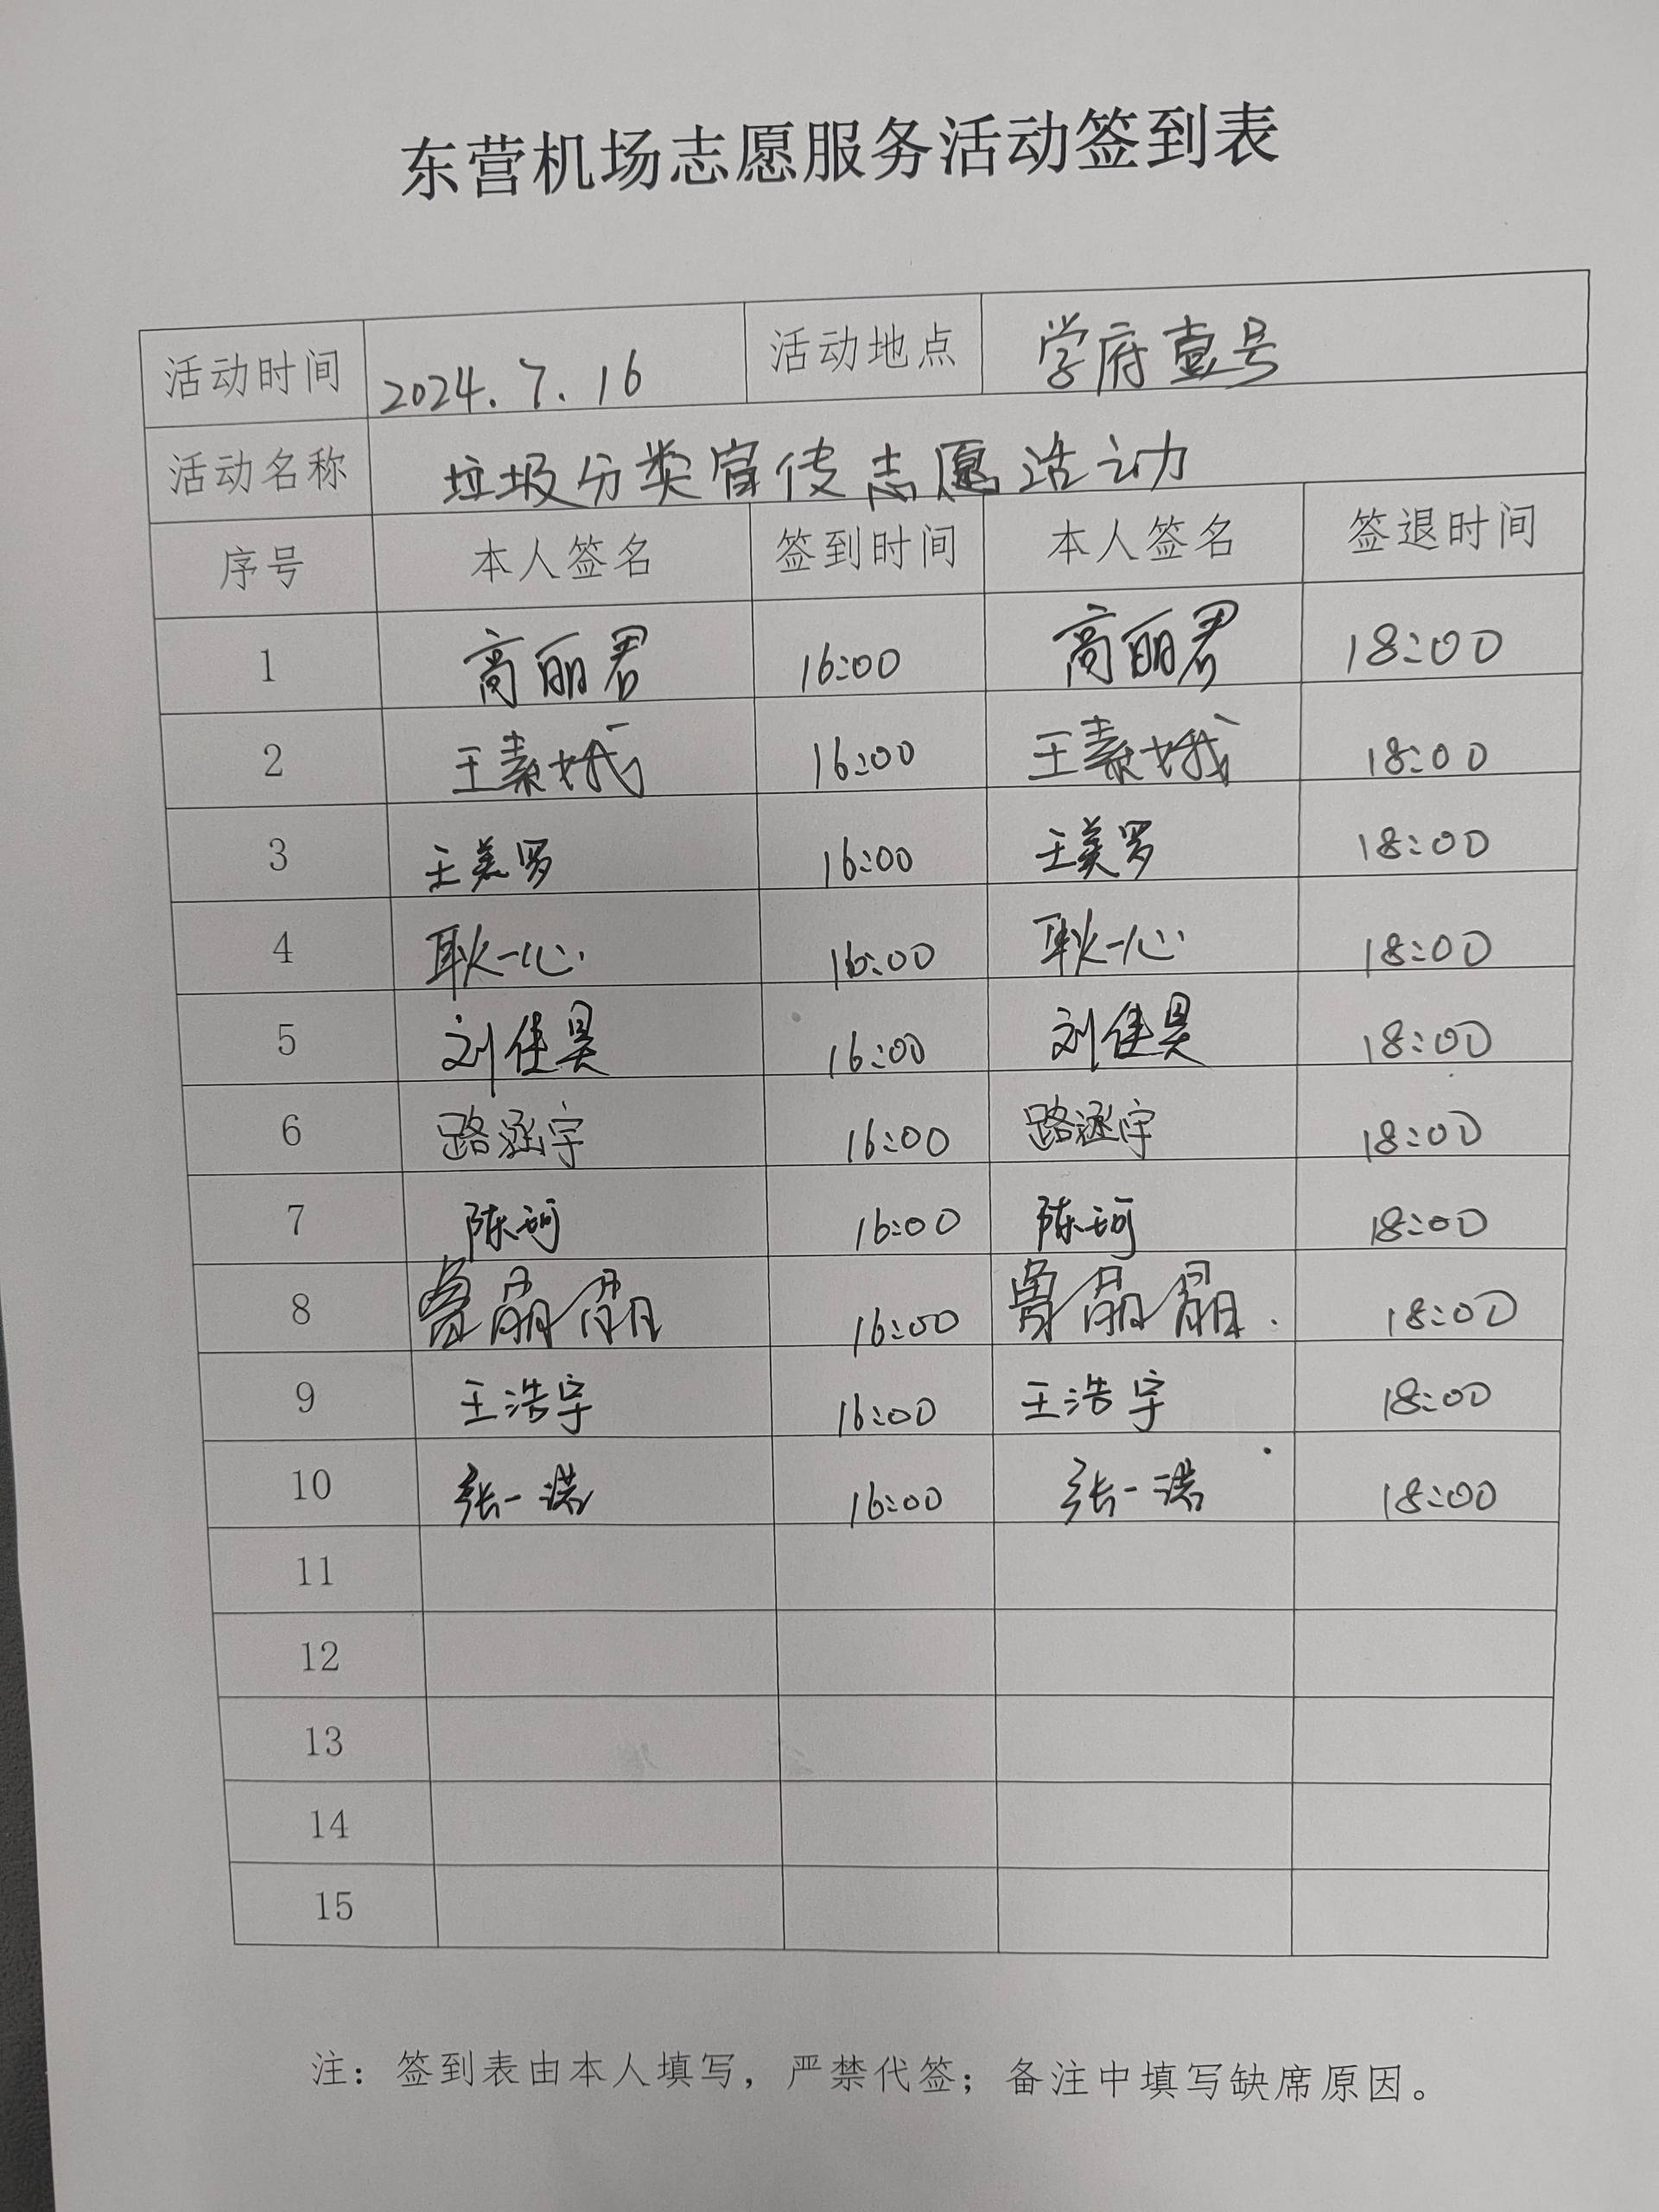 东营机场志愿服务活动签到表
活动时间 2024.7.16 活动地点 学府壹号
活动名称 垃圾分类宣传志愿活动
序号 本人签名 签到时间 本人签名 签退时间
1 高丽君 16:00 高丽君 18:00
2 王素娥 16:00 王素娥 18:00
3 王美罗 16:00 王美罗 18:00
4 耿一心 16:00 耿一心 18:00
5 刘佳昊 16:00 刘佳昊 18:00
6 路涵宇 16:00 路涵宇 18:00
7 陈珂 16:00 陈珂 18:00
8 16:00 18:00
9 王浩宇 16:00 王浩宇 18:00
10 张一 16:00 张一 18:00
11
12
13
14
15
注：签到表由本人填写，严禁代签；备注中填写缺席原因。